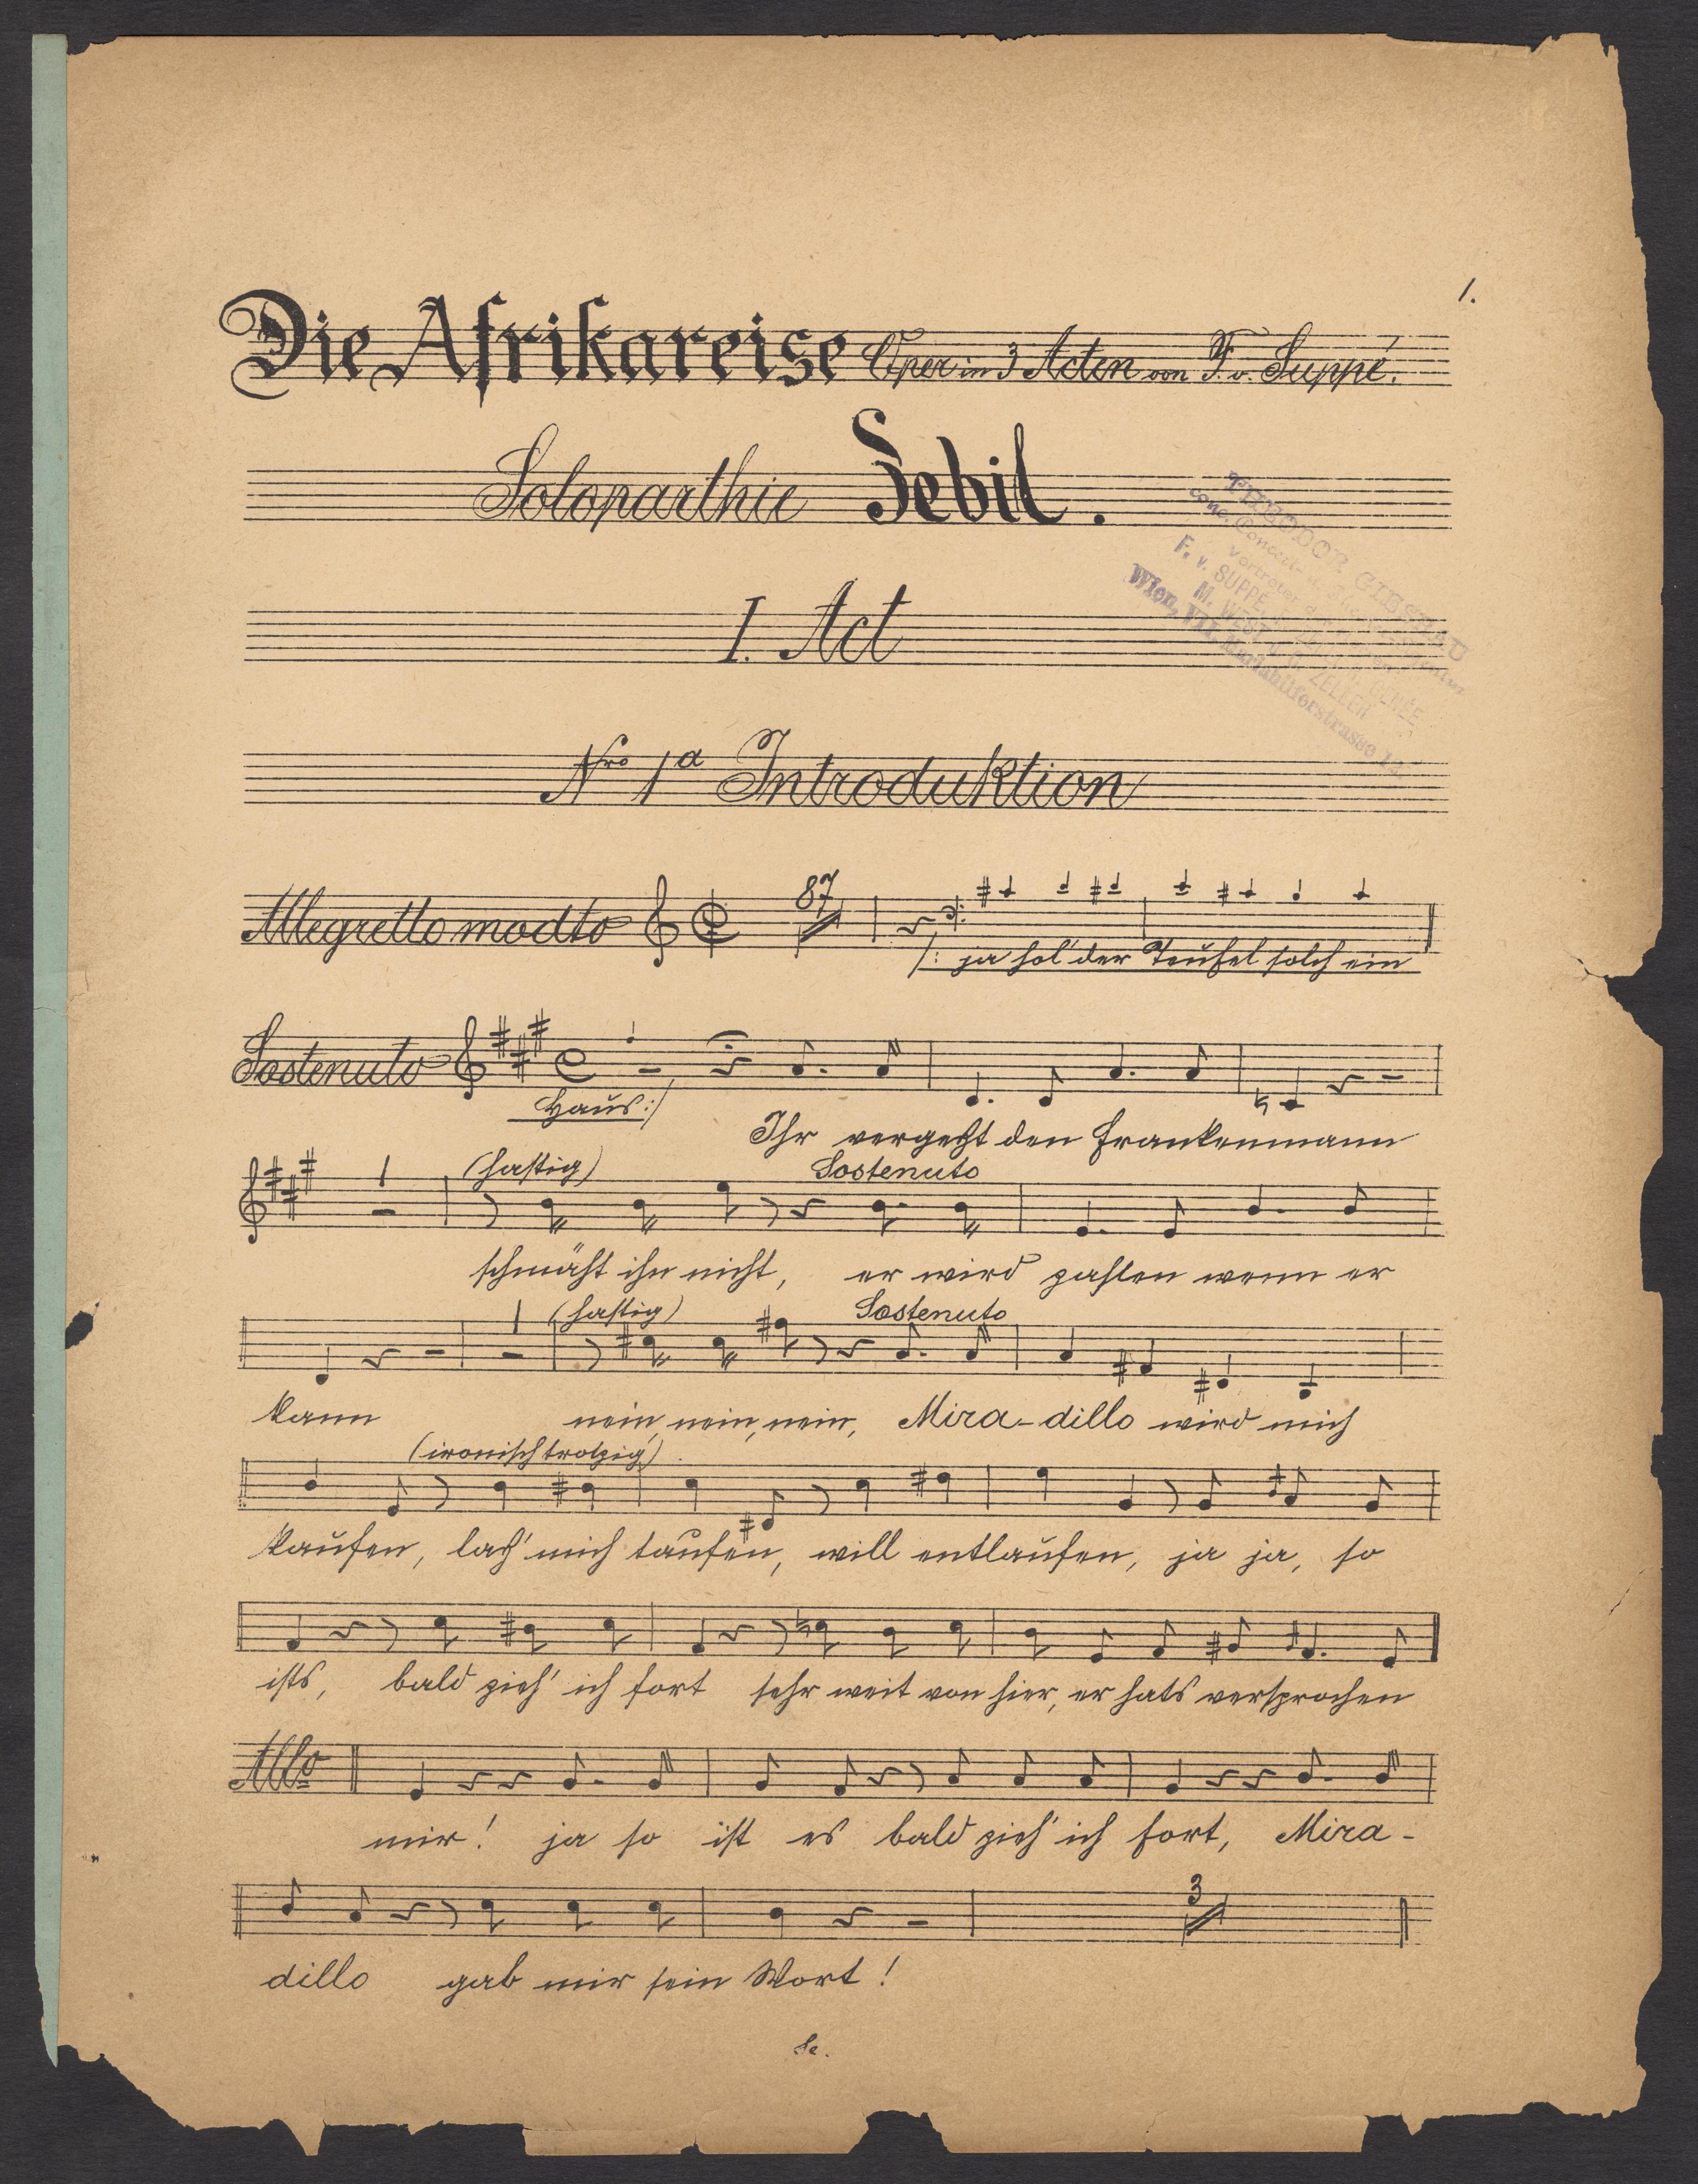 1.
Die Afrikareise Oper in 3 Acten von F. v. Suppé.
Soloparthie Sebil.
THEODOR
conc. Concert-
Vertreter der
F. v. SUPPÉ,
M. WEST ZELLER
Wien, VII. Mariahilferstrasse
I. Act
Nro 1a Introduktion
Allegretto modto 87
/: ja hol' der Teufel solch ein
Sostenuto 1
Haus :/ Ihr vergeßt den Frankenmann
1 (hastig) Sostenuto
schmäht ihn nicht, er wird zahlen wenn er
1 (hastig) Sostenuto
kann nein, nein, nein, Mira-dillo wird mich
(ironisch trotzig)
kaufen, laß' mich taufen, will entlaufen, ja ja, so
ists, bald zieh' ich fort sehr weit von hier, er hats versprochen
Allo
mir! ja so ist es bald zieh' ich fort, Mira-
3
dillo gab mir sein Wort!
Se.